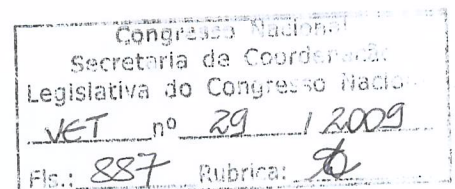 Congresso Nacional
Secretaria de Coordenação
Legislativa do Congresso Nacio
VET nº 29 / 2009
Fls.: 887 Rubrica: